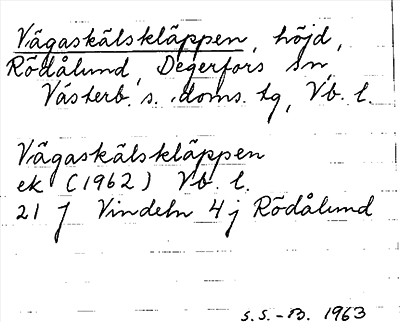 Vägaskälskläppen, höjd,
Rödålund, Degerfors sn,
Västerb. s. doms. tg, Vb. l.
Vägaskälskläppen
ek (1962) Vb. l.
21 J Vindeln 4 j Rödålund
S.S.-B. 1963